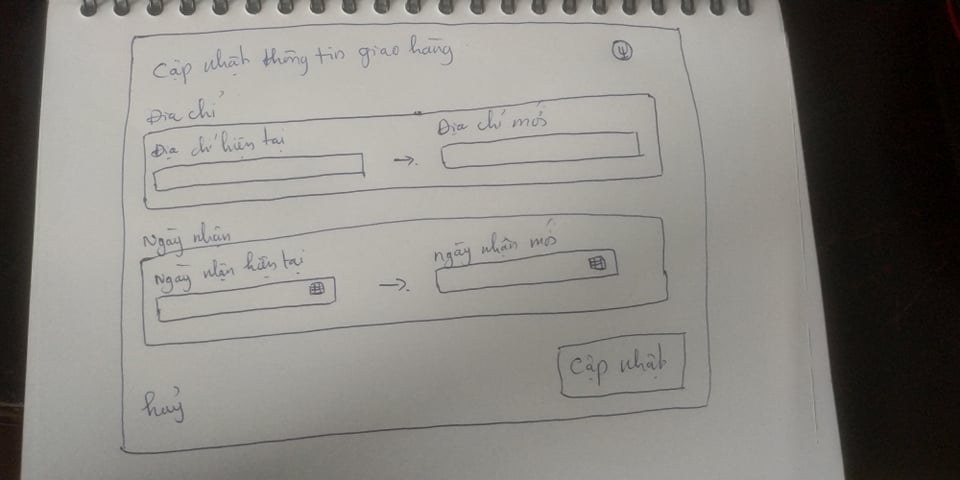 Cập nhật thông tin giao hàng
4
Địa chỉ
Địa chỉ hiện tại
Địa chỉ mới
Ngày nhận
Ngày nhận hiện tại
ngày nhận mới
Cập nhật
huỷ